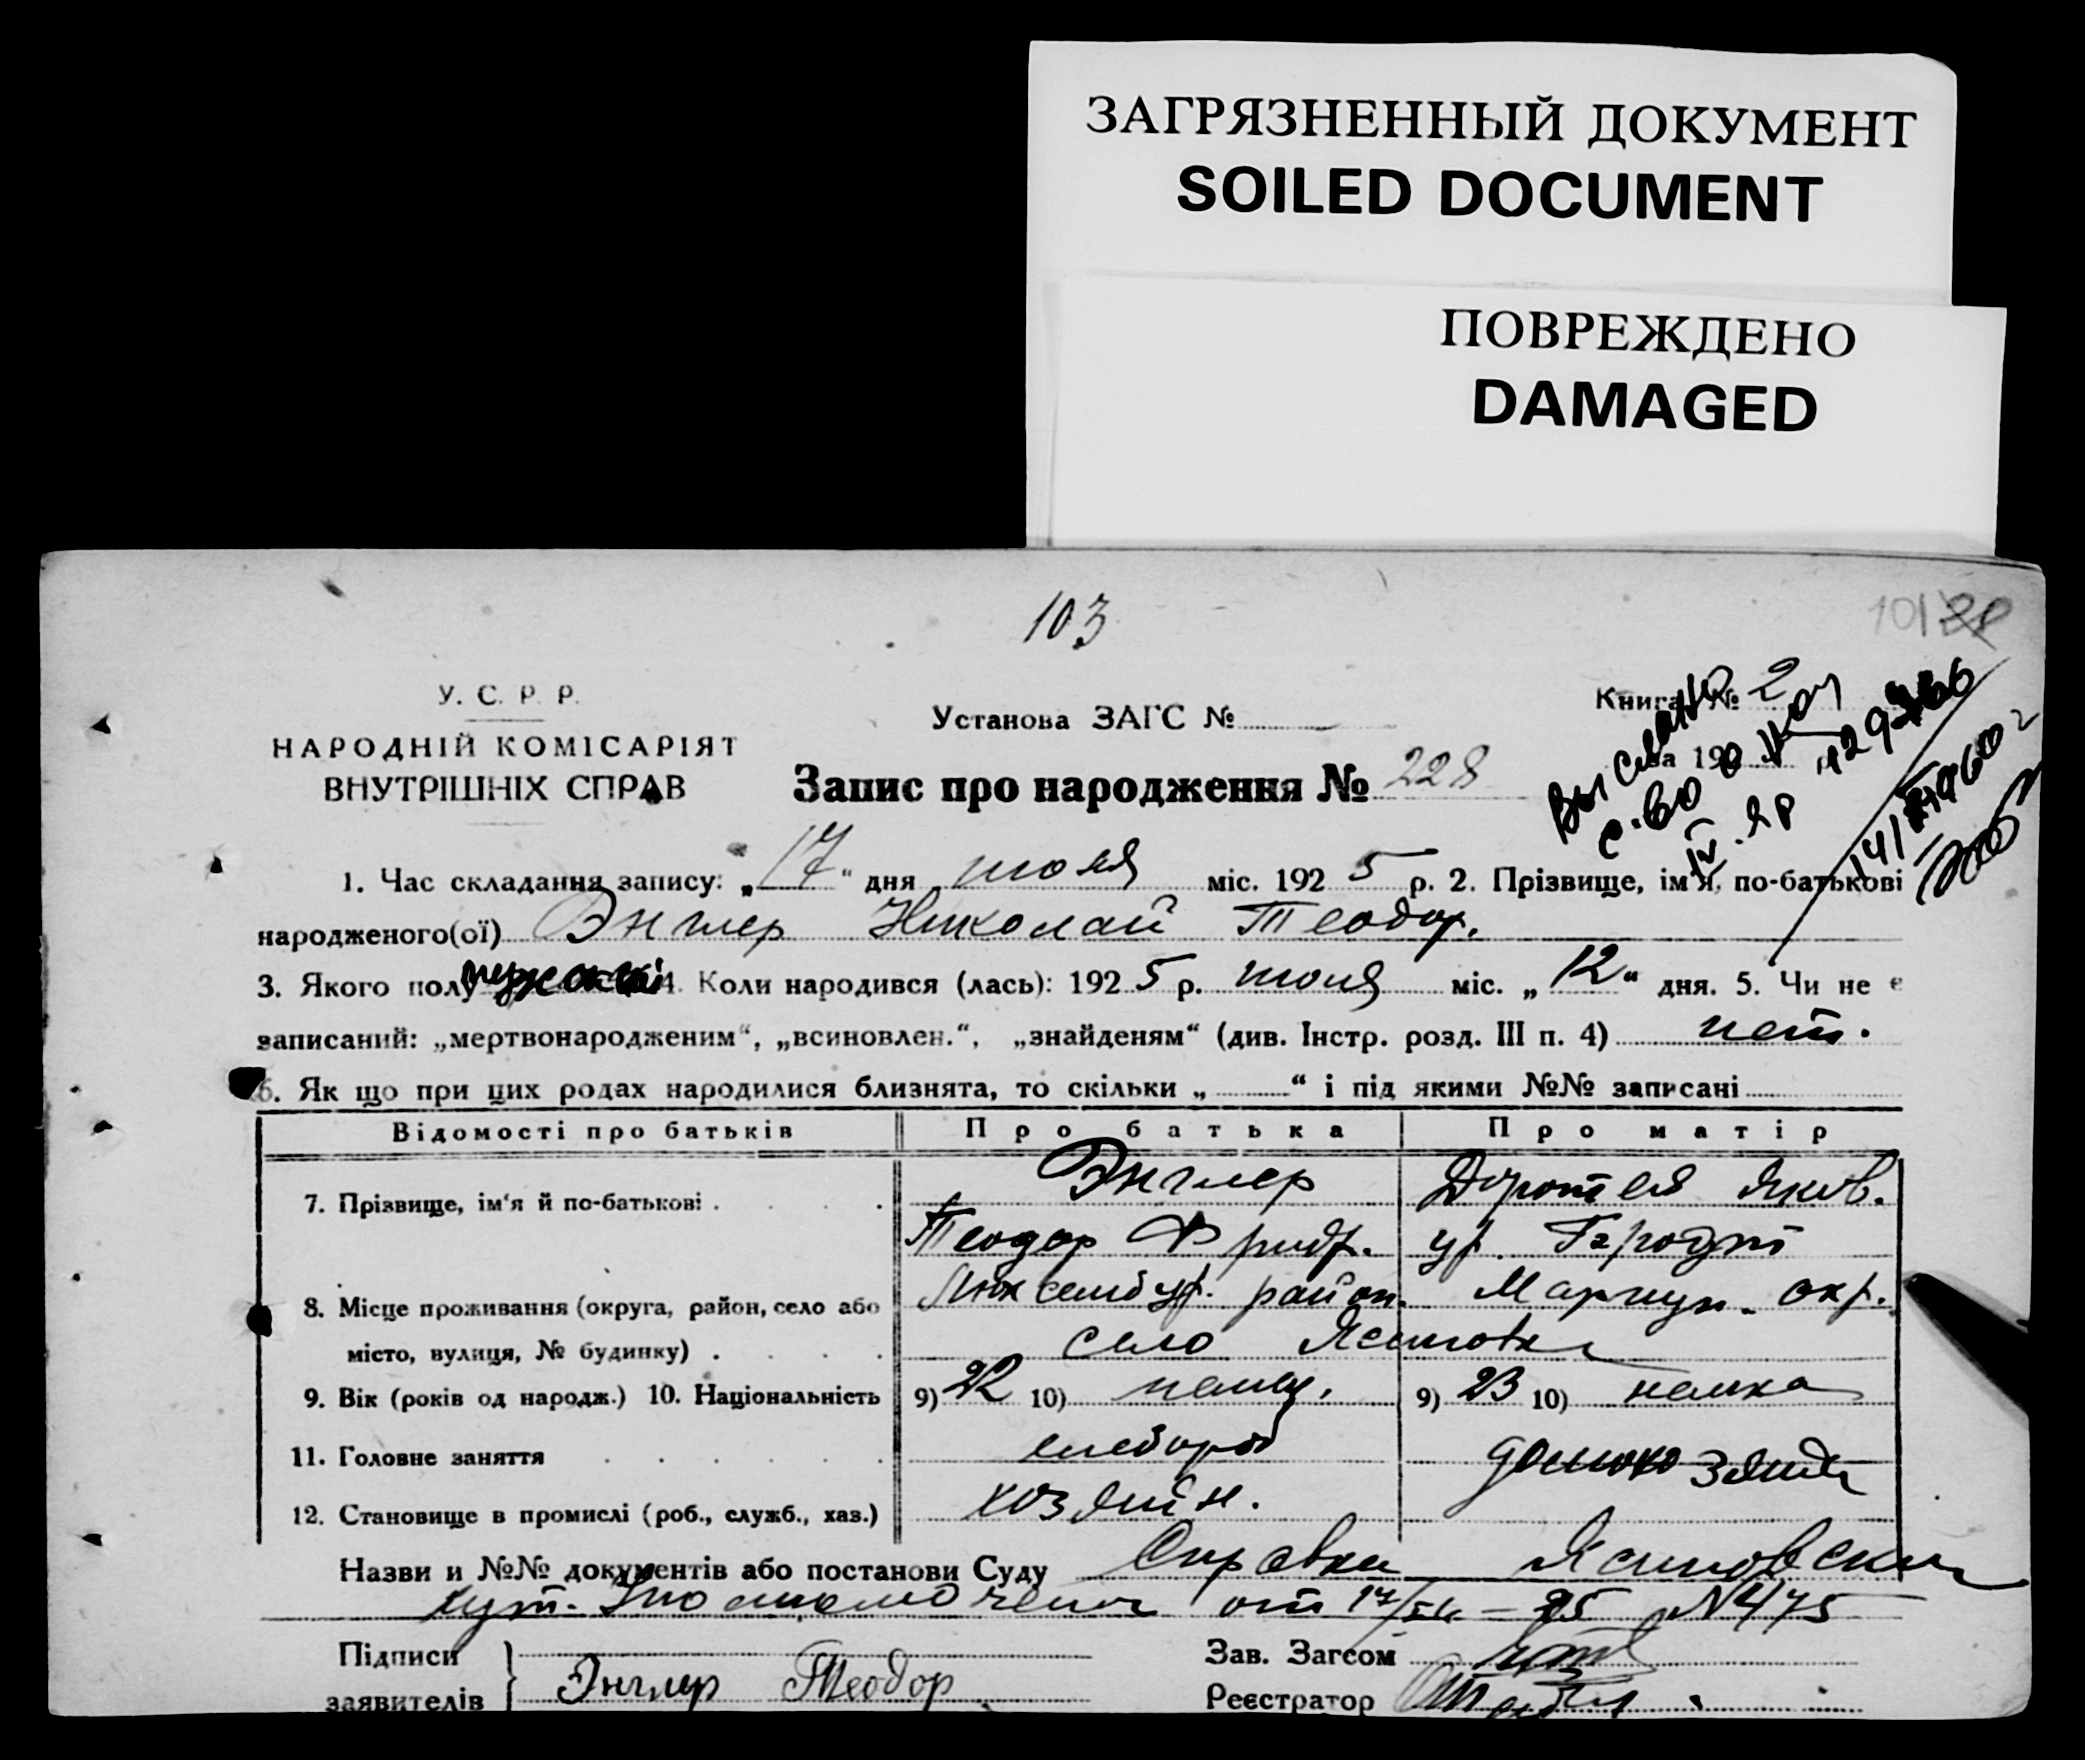 ЗАГРЯЗНЕННЫЙ ДОКУМЕНТ
SOILED DOCUMENT
ПОВРЕЖДЕНО
DAMAGED
103
101
У. С. Р. Р.
НАРОДНІЙ КОМІСАРІЯТ
ВНУТРІШНІХ СПРАВ
Установа ЗАГС №
Книга № 2
за 192
Запис про народження № 228
Выслано
с-во о
14/IV 1960 г
1. Час складання запису: „17“ дня июля міс. 1925 р. 2. Прізвище, ім'я, по-батькові
народженого(ої) Энглер Николай Теодор.
3. Якого полу мужской 4. Коли народився (лась): 1925 р. июля міс. „12“ дня. 5. Чи не є
записаний: „мертвонародженим“, „всиновлен.“, „знайденям“ (див. Інстр. розд. III п. 4) нет.
6. Як що при цих родах народилися близнята, то скільки „ “ і під якими №№ записані
Відомості про батьків Про батька Про матір
7. Прізвище, ім'я й по-батькові Энглер Теодор Фридр. Доротея Яков. ур.
8. Місце проживання (округа, район, село або Люксембур. район. Мариуп. окр.
місто, вулиця, № будинку) село Ясиновка
9. Вік (років од народж.) 10. Національність 9) 22 10) немец. 9) 23 10) немка
11. Головне заняття хлебороб домохозяйка
12. Становище в промислі (роб., служб., хаз.) хозяин.
Назви и №№ документів або постанови Суду Справка Ясиновский
от 17/ - 25 №475
Підписи
заявителів Энглер Теодор
Зав. Загсом
Реєстратор